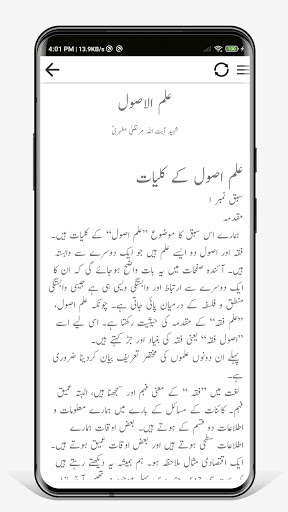 4:01 PM | 13.9KB/s
علم الاصول
شہید آیت اللہ مرتضٰی مطہریؒ
علم اصول کے کلیات
سبق نمبر ۱
مقدمہ
ہمارے اس سبق کا موضوع ”علم اصول“ کے کلیات ہیں۔
فقہ اور اصول دو ایسے علم ہیں جو ایک دوسرے سے وابستہ
ہیں۔ آئندہ صفحات میں یہ بات واضح ہوجائے گی کہ ان کا
ایک دوسرے سے ارتباط اور وابستگی ویسی ہی ہے جیسی وابستگی
منطق و فلسفہ کے درمیان پائی جاتی ہے۔ چونکہ علم اصول،
”علم فقہ“ کے مقدمہ کی حیثیت رکھتا ہے۔ اسی لیے اسے
”اصول فقہ“ یعنی فقہ کی بنیاد اور جڑ کہتے ہیں۔
پہلے ان دونوں علموں کی مختصر تعریف بیان کردینا ضروری
ہے۔
لغت میں ”فقہ“ کے معنی فہم اور سمجھنا ہیں، البتہ عمیق
فہم۔ کائنات کے مسائل کے بارے میں ہمارے معلومات و
اطلاعات دو قسم کے ہوتے ہیں۔ بعض اوقات ہمارے
اطلاعات سطحی ہوتے ہیں اور بعض اوقات عمیق ہوتے ہیں۔
ایک اقتصادی مثال ملاحظہ ہو۔ ہم ہمیشہ یہ دیکھتے رہتے ہیں